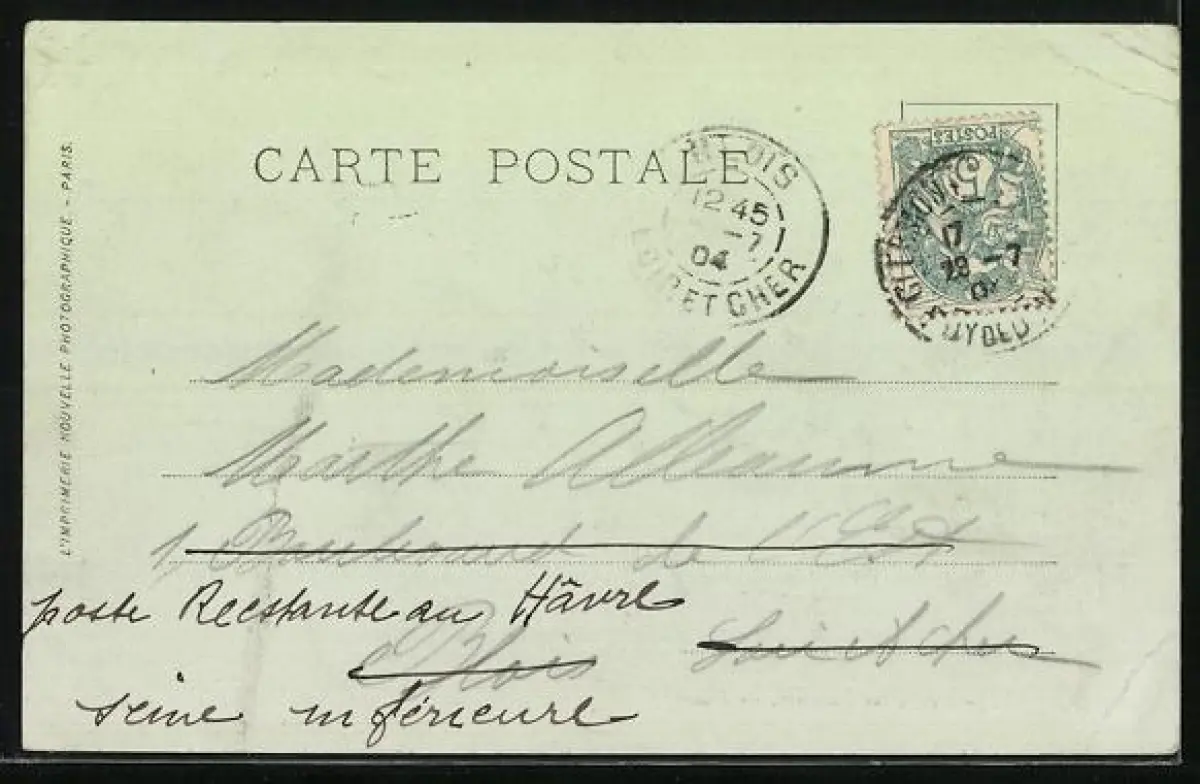 CARTE POSTALE
L'IMPRIMERIE NOUVELLE PHOTOGRAPHIQUE - PARIS.
POSTES
5
17
28 -7
12 45
-7
04
LOIR ET CHER
Mademoiselle
Marthe Alleaume
1, Boulevard de l'Est
poste Reestante au Hâvre
Blois Loir et Cher
seine inférieure